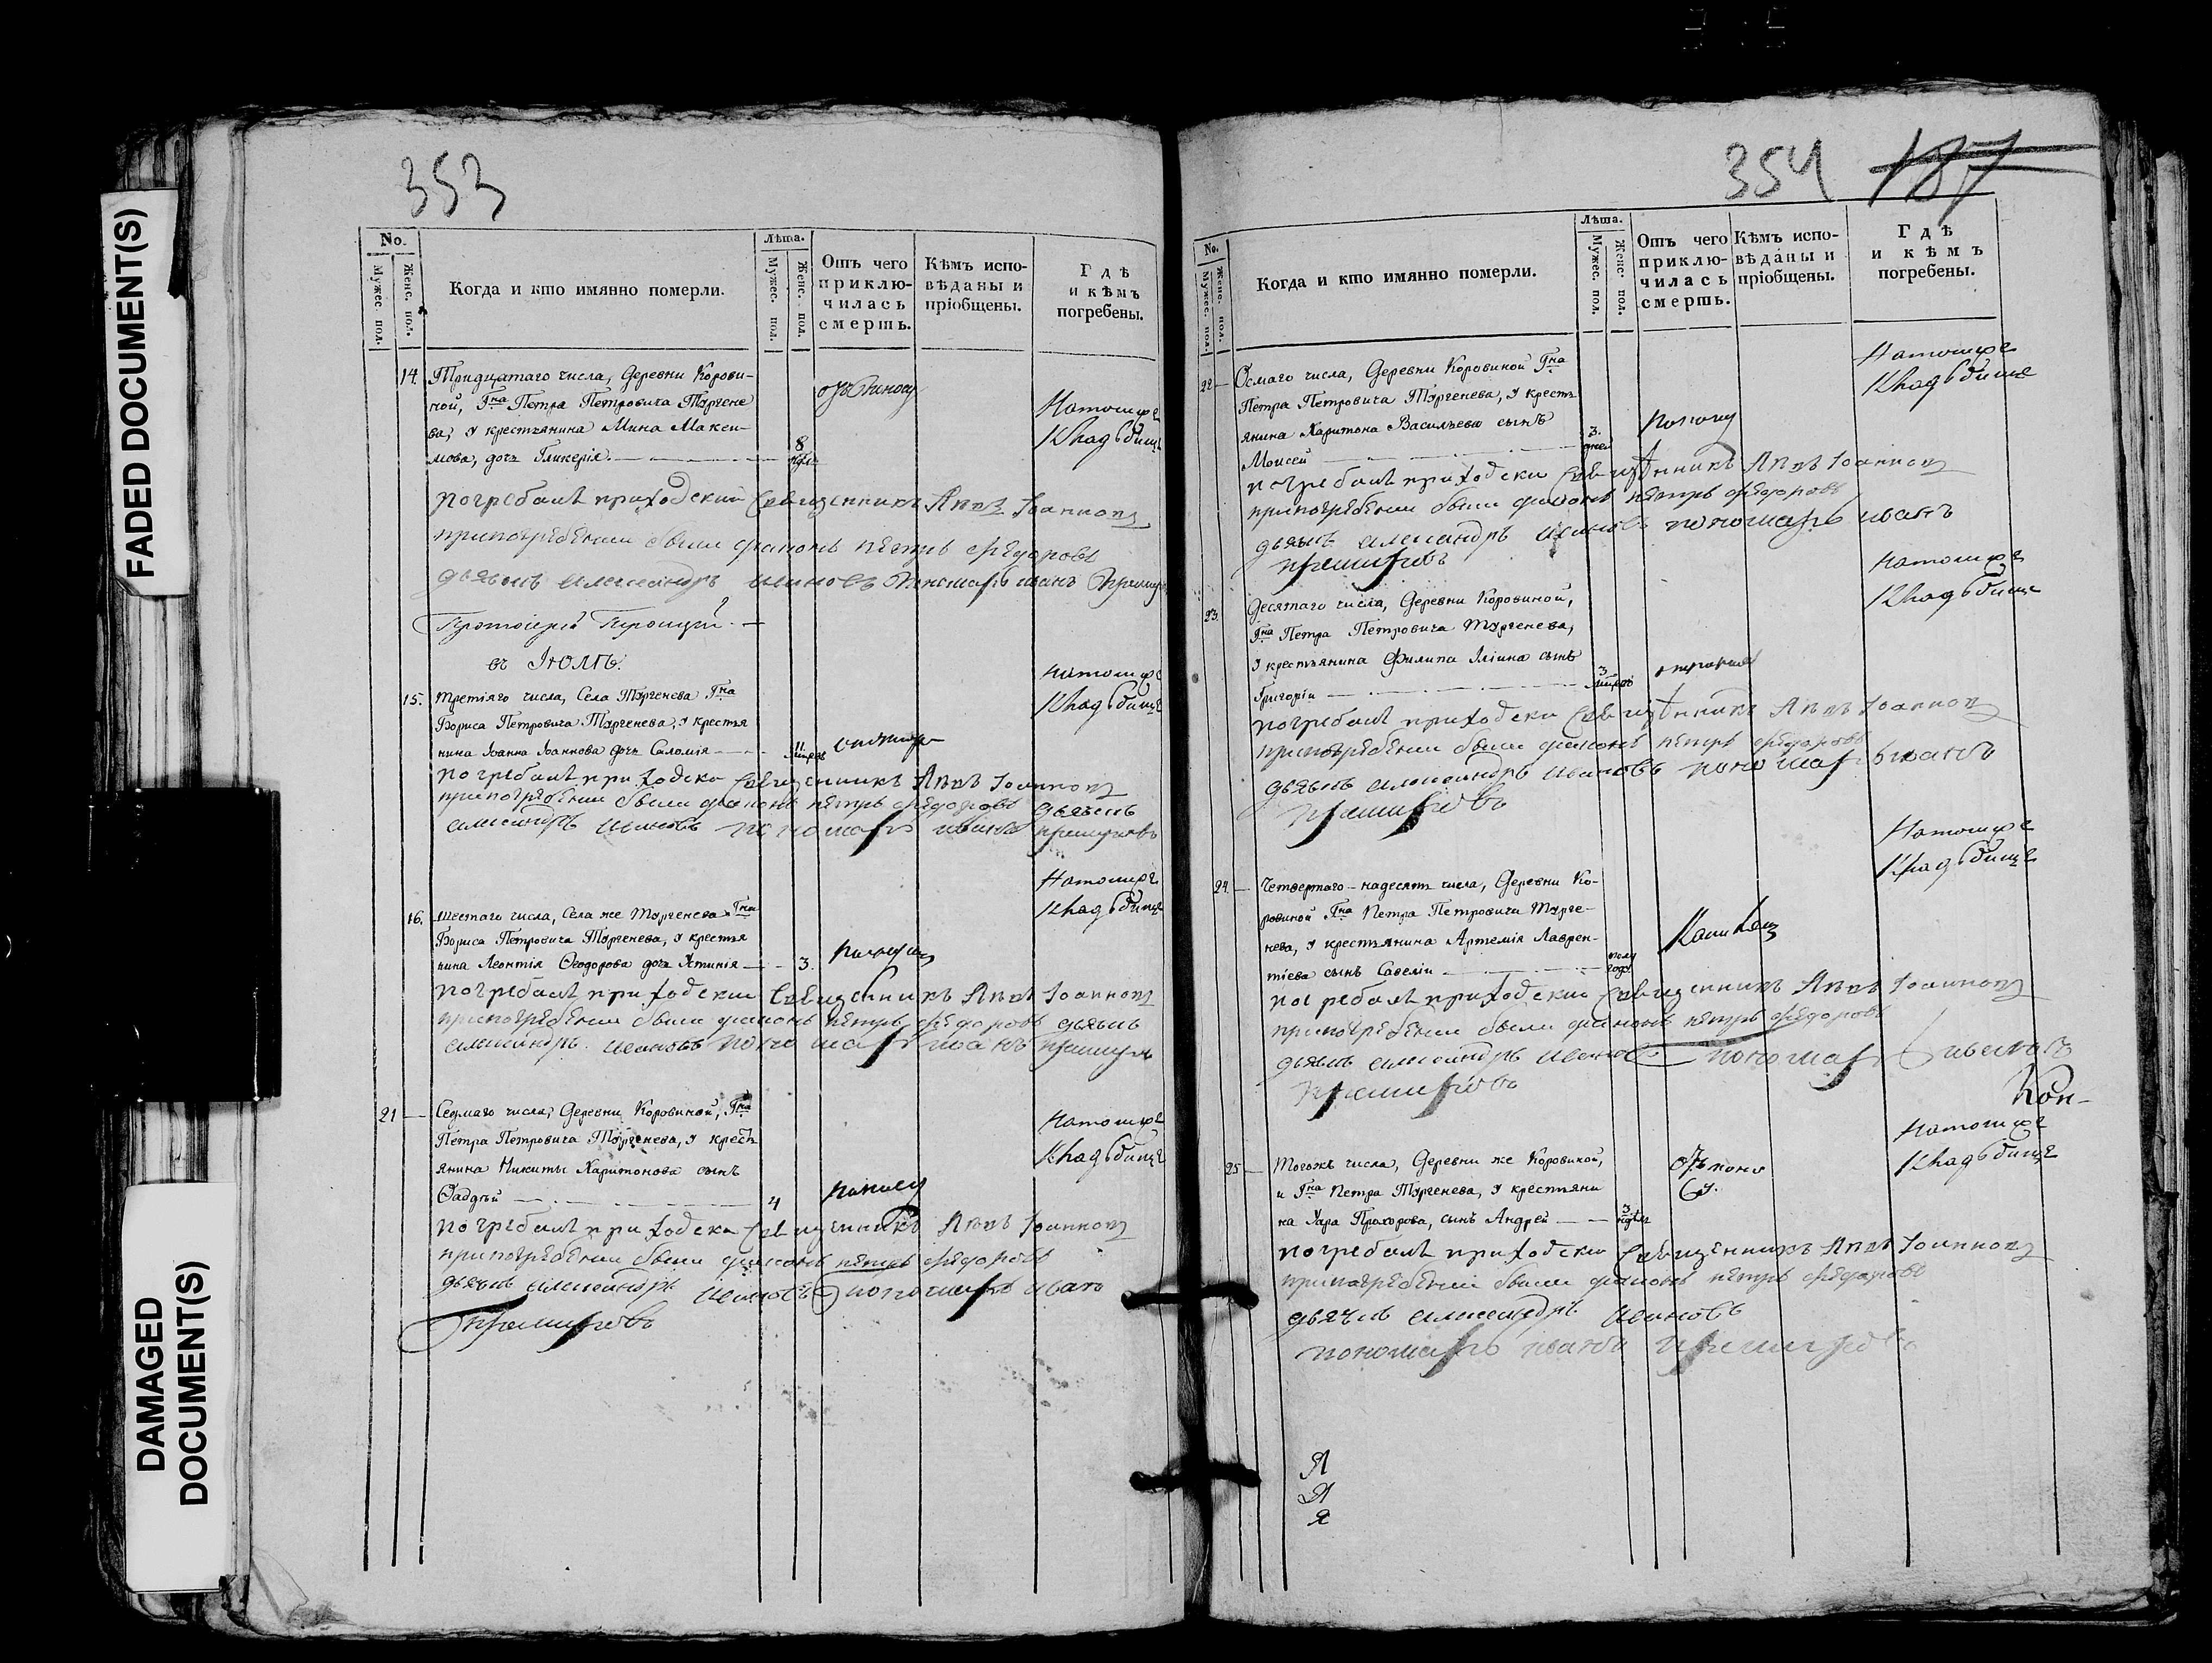 FADED DOCUMENT(S)
DAMAGED
DOCUMENT(S)
353
No.
Мужес. пол.
Женс. пол.
Когда и кто имянно померли.
Лѣта.
Мужес. пол.
Женс. пол.
Отъ чего
приклю-
чилась
смерть.
Кѣмъ испо-
вѣданы и
пріобщены.
Гдѣ
и кѣмъ
погребены.
14. Тридцатаго числа, Деревни Корови-
ной, Гна Петра Петровича Тургене
ва, у крестьянина Мина Макси-
мова, дочь Гликерія.
8
недѣль
отъ поносу
На томъ же
Кладбищѣ
погребалъ приходский Священникъ Левъ Іоанновъ
при погребении были диаконъ петръ федоровъ
дьячекъ александръ ивановъ пономарь иванъ
Протоіерей Троицкій.
въ Іюлѣ.
15. Третіяго числа, Села Тургенева Гна
Бориса Петровича Тургенева, у крестья
нина Іоанна Іоаннова дочь Саломія
11.
на томъ же
Кладбище
погребалъ приходски Священникъ Левъ Іоанновъ
при погребении были диаконъ петръ федоровъ дьячекъ
александръ ивановъ пономарь иванъ
16. Шестаго числа, Села же Тургенева Гна
Бориса Петровича Тургенева, у крестья
нина Леонтія Ѳеодорова дочь Устинія
3.
На томъ же
Кладбище
погребалъ приходскии Священникъ Левъ Іоанновъ
при погребении были диаконъ петръ федоровъ дьячекъ
александръ ивановъ пономарь иванъ
21 Седмаго числа, Деревни Коровиной, Гна
Петра Петровича Тургенева, у кресть
янина Никиты Харитонова сынъ
Ѳаддѣй
4
На томъ же
Кладбище
погребалъ приходски Священникъ Левъ Іоанновъ
при погребении были диаконъ петръ федоровъ
дьячекъ александръ ивановъ пономарь иванъ
354 187
No.
Мужес. пол.
Женс. пол.
Когда и кто имянно померли.
Лѣта.
Мужес. пол.
Женс. пол.
Отъ чего
приклю-
чилась
смерть.
Кѣмъ испо-
вѣданы и
пріобщены.
Гдѣ
и кѣмъ
погребены.
22 Осмаго числа, Деревни Коровиной Гна
Петра Петровича Тургенева, у кресть
янина Харитона Васильева сынъ
Моисей
3.
дней
поносу
На томъ же
Кладбище
погребалъ приходски Священникъ Левъ Іоанновъ
при погребении были диаконъ петръ федоровъ
дьячекъ александръ ивановъ пономарь иванъ
23. Десятаго числа, Деревни Коровиной,
Гна Петра Петровича Тургенева,
у крестьянина Филипа Иліина сынъ
Григорій
3
на томъ же
Кладбище
погребалъ приходски Священникъ Левъ Іоанновъ
при погребении были диаконъ петръ федоровъ
дьячекъ александръ ивановъ пономарь иванъ
24. Четвертаго-надесять числа, Деревни Ко-
ровиной Гна Петра Петровича Турге-
нева, у крестьянина Артемія Лаврен-
тіева сынъ Савелій
полу
года
На томъ же
Кладбище
погребалъ приходскии Священникъ Левъ Іоанновъ
при погребении были диаконъ петръ федоровъ
дьячекъ александръ ивановъ пономарь иванъ
25 Тогожъ числа, Деревни же Коровиной,
и Гна Петра Тургенева, у крестьяни
на Уара Прохорова, сынъ Андрей
3
недѣл
отъ поно
су.
На томъ же
Кладбище
погребалъ приходски Священникъ Левъ Іоанновъ
при погребении были диаконъ петръ федоровъ
дьячекъ александръ ивановъ
пономарь иванъ
Я
Я
Я